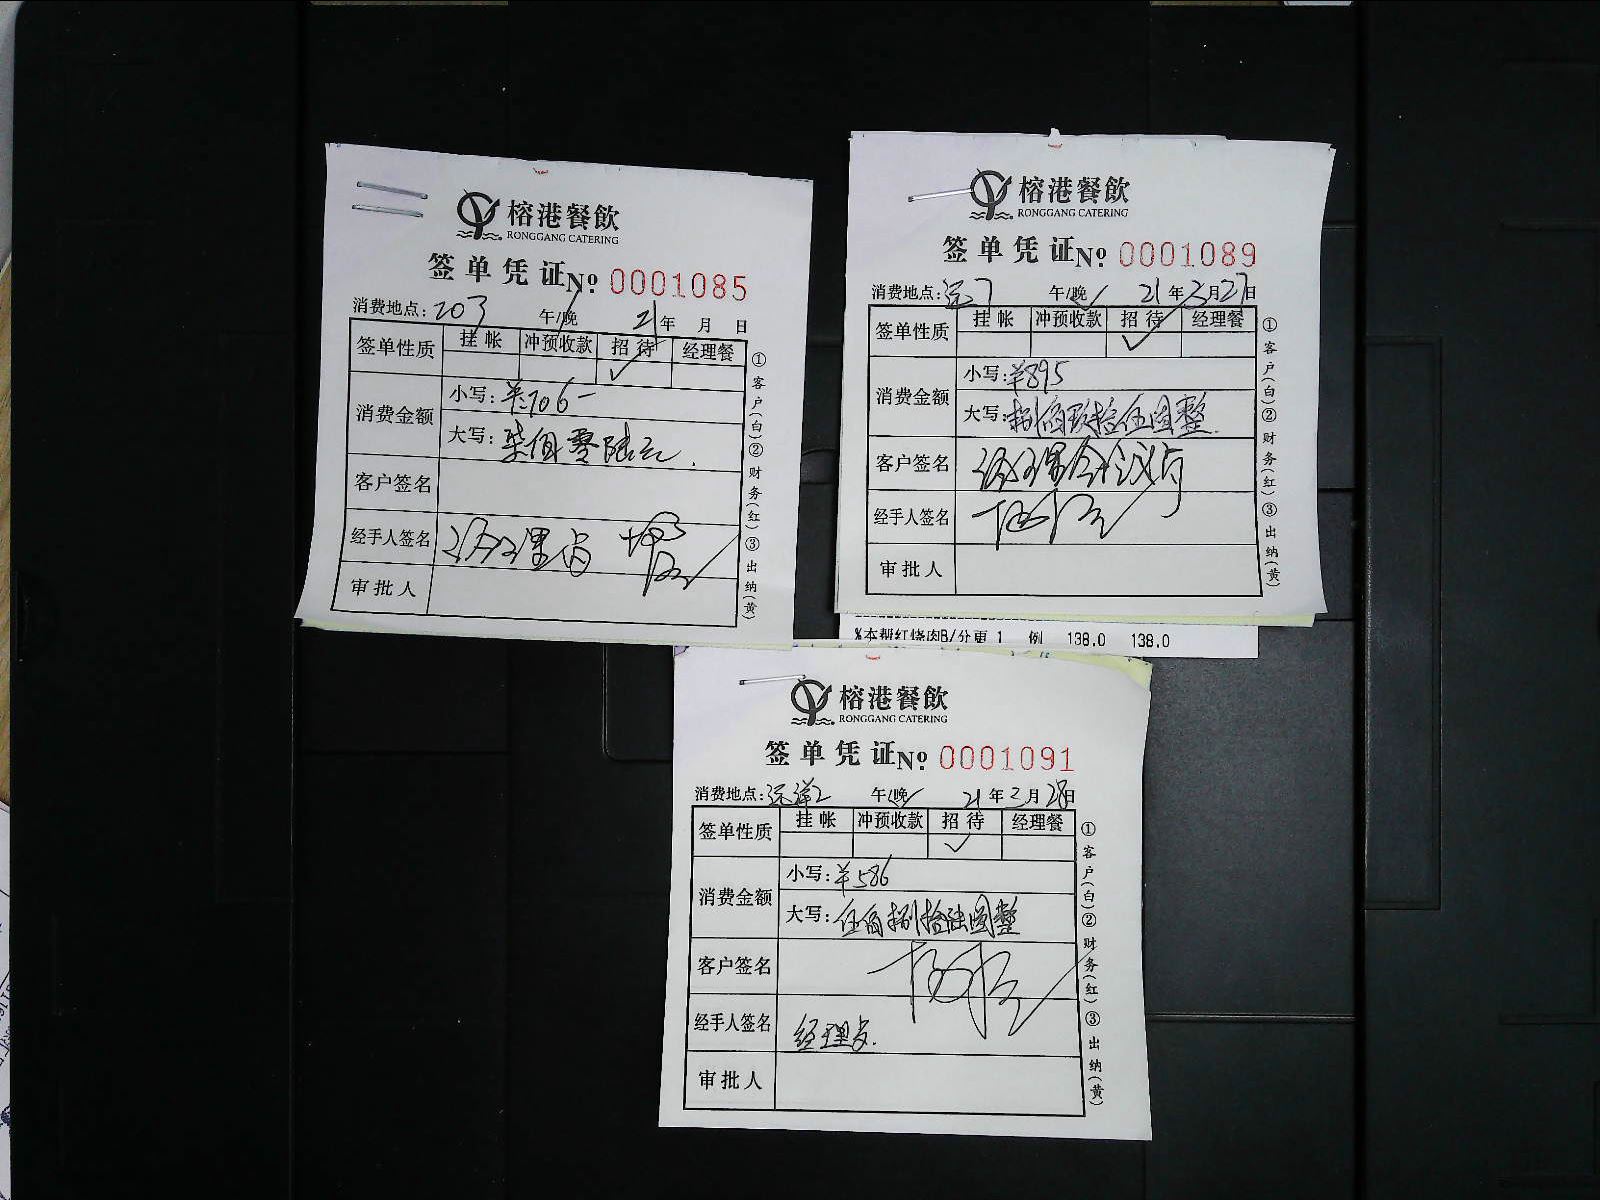 榕港餐飲
RONGGANG CATERING
签单凭证 No 0001085
消费地点: 203 午/晚 21年 月 日
签单性质 挂帐 冲预收款 招待 经理餐
消费金额 小写: ¥:706-
大写: 柒佰零陆元.
客户签名
经手人签名
审批人
①客户(白)②财务(红)③出纳(黄)
榕港餐飲
RONGGANG CATERING
签单凭证 No 0001089
消费地点: 远7 午/晚 21年2月27日
签单性质 挂帐 冲预收款 招待 经理餐
消费金额 小写: ¥895
大写: 捌佰玖拾伍圆整.
客户签名
经手人签名
审批人
①客户(白)②财务(红)③出纳(黄)
%本帮红烧肉B/分更 1 例 138.0 138.0
榕港餐飲
RONGGANG CATERING
签单凭证 No 0001091
消费地点: 远洋2 午/晚 21年2月28日
签单性质 挂帐 冲预收款 招待 经理餐
消费金额 小写: ¥586
大写: 伍佰捌拾陆圆整
客户签名
经手人签名 经理点.
审批人
①客户(白)②财务(红)③出纳(黄)